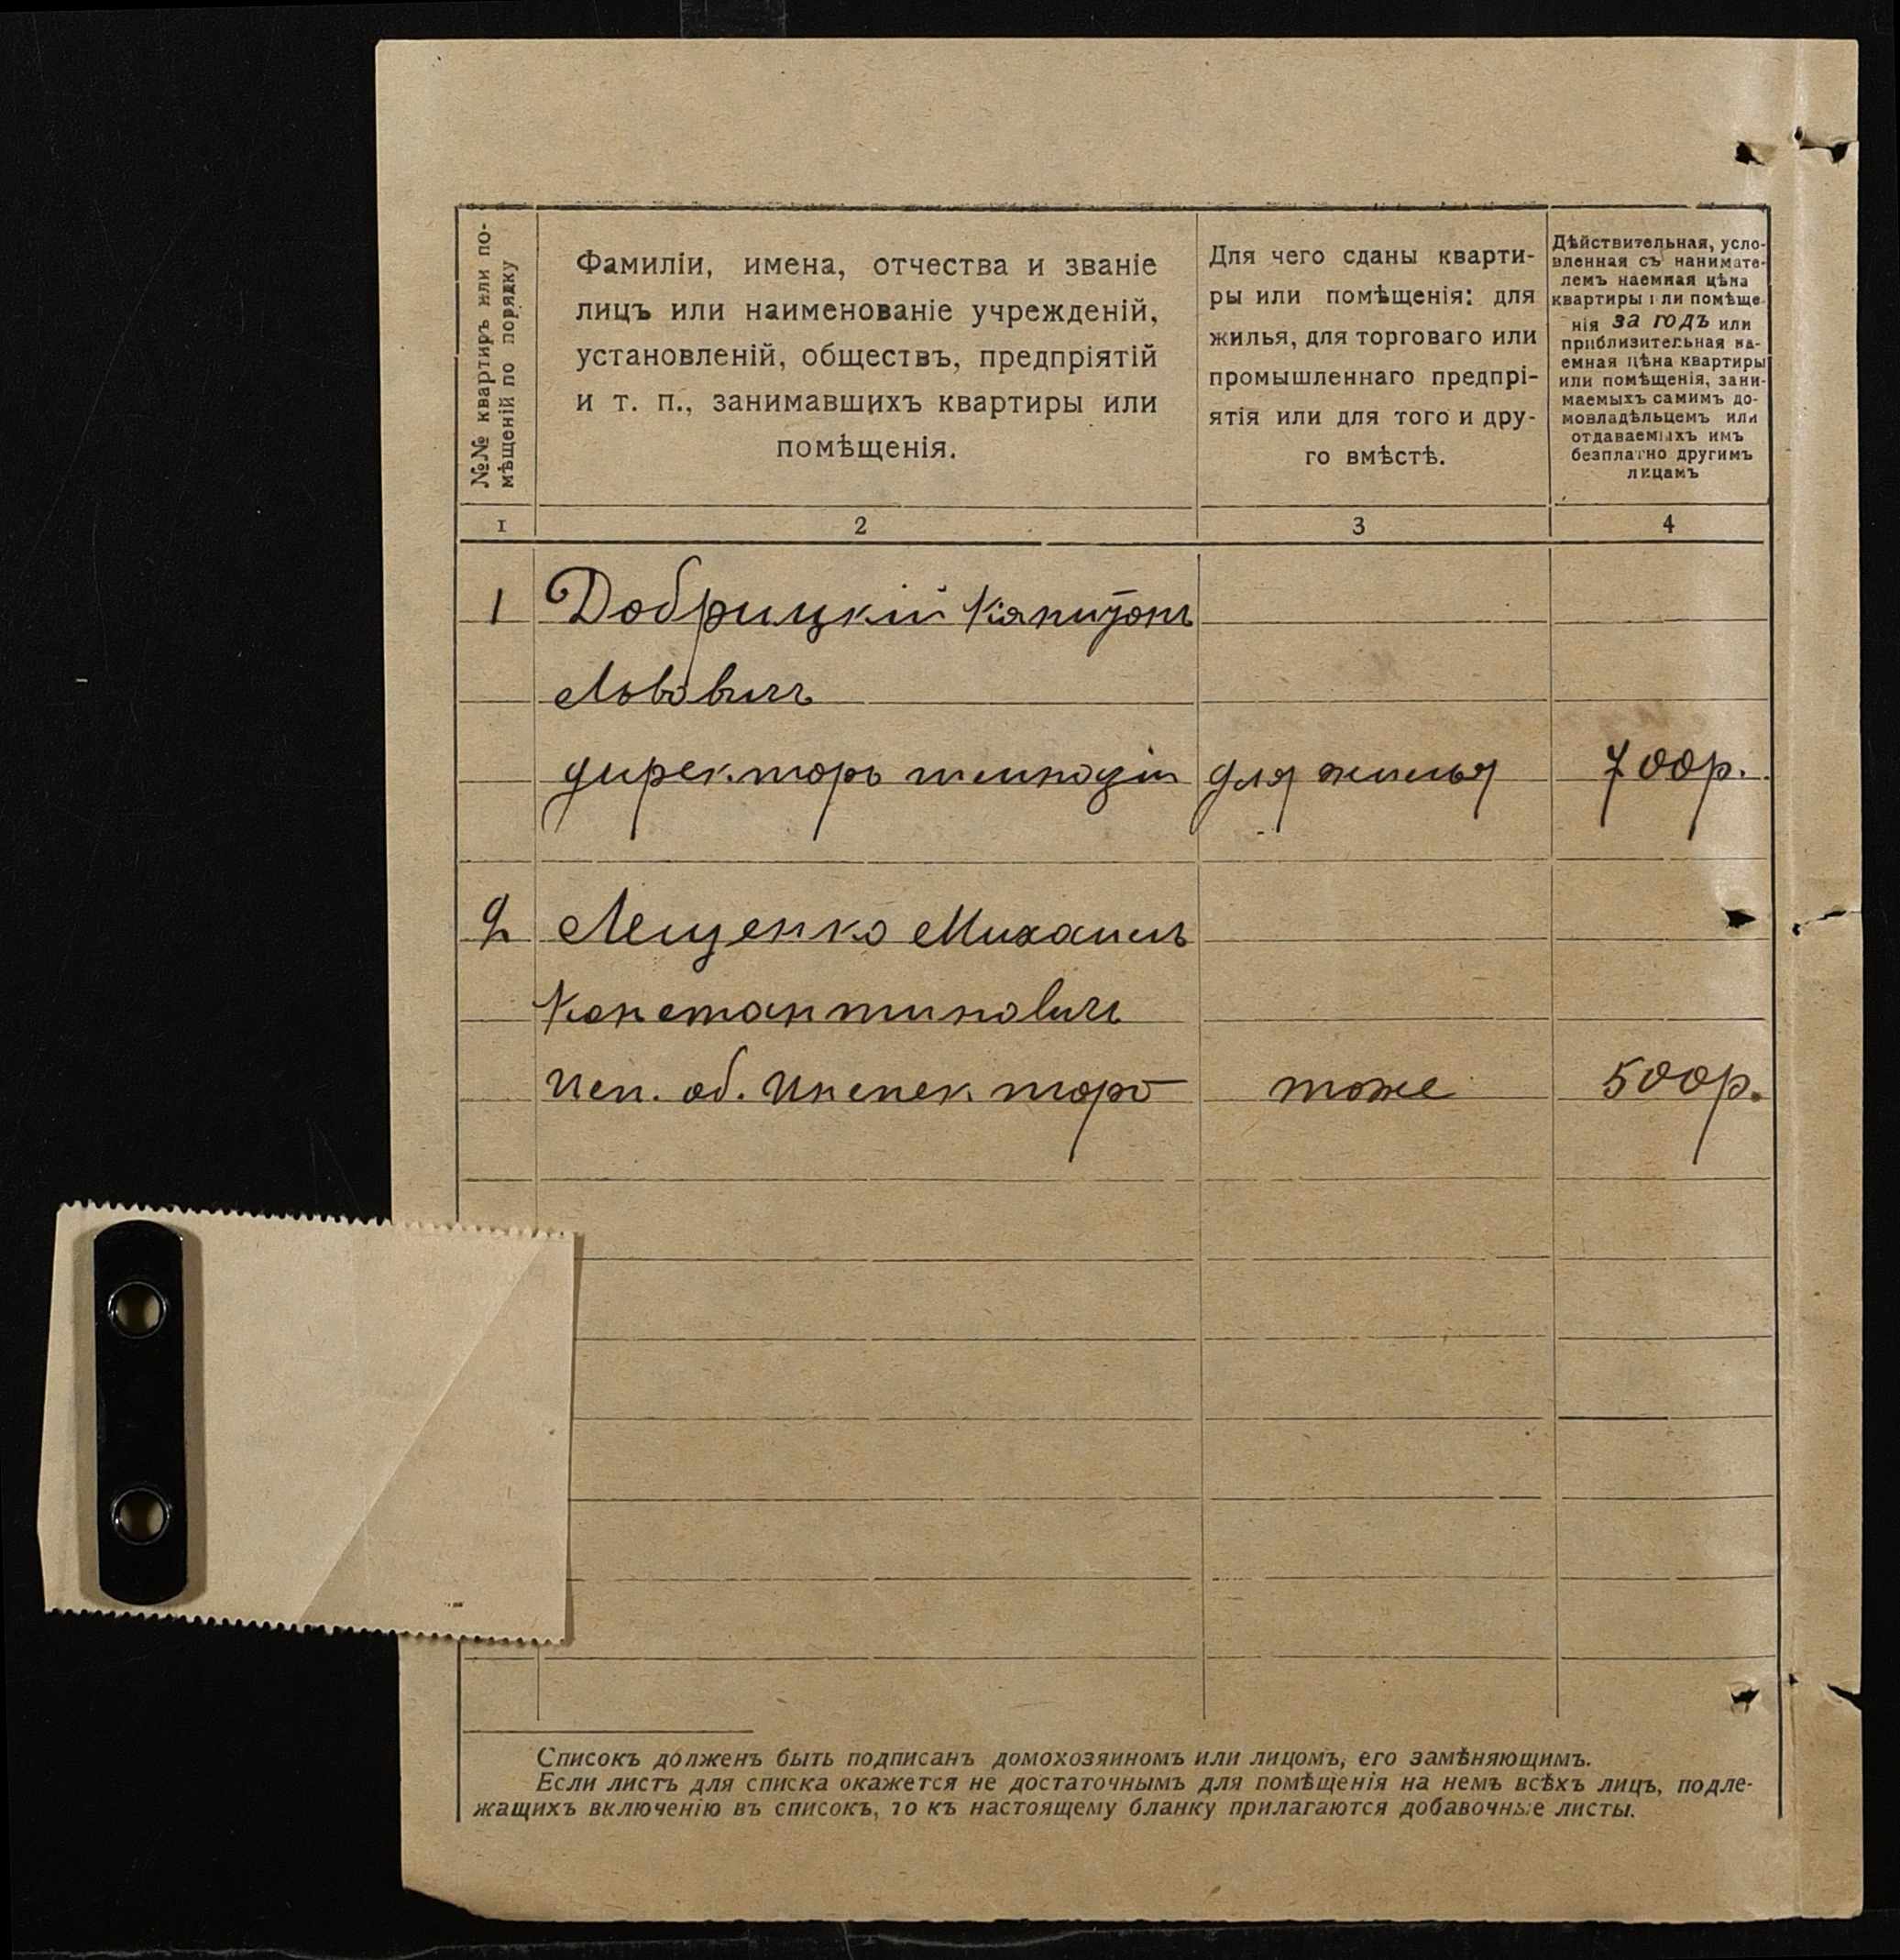 №№ квартиръ или по-
мѣщеній по порядку
Фамиліи, имена, отчества и званіе
лицъ или наименованіе учрежденій,
установленій, обществъ, предпріятій
и т. п., занимавшихъ квартиры или
помѣщенія.
Для чего сданы кварти-
ры или помѣщенія: для
жилья, для торговаго или
промышленнаго предпрі-
ятія или для того и дру-
го вмѣстѣ.
Дѣйствительная, усло-
вленная съ нанимате-
лемъ наемная цѣна
квартиры или помѣще-
нія за годъ или
приблизительная на-
емная цѣна квартиры
или помѣщенія, зани-
маемыхъ самимъ до-
мовладѣльцемъ или
отдаваемыхъ имъ
безплатно другимъ
лицамъ
1 2 3 4
1 Добрицкій Капитонъ
Львовичъ
директоръ гимназіи для жилья 700р.
2 Лещенко Михаилъ
Константиновичъ
Исп. об. Инспектора тоже 500р.
Списокъ долженъ быть подписанъ домохозяиномъ или лицомъ, его замѣняющимъ.
Если листъ для списка окажется не достаточнымъ для помѣщенія на немъ всѣхъ лицъ, подле-
жащихъ включенію въ списокъ, то къ настоящему бланку прилагаются добавочные листы.